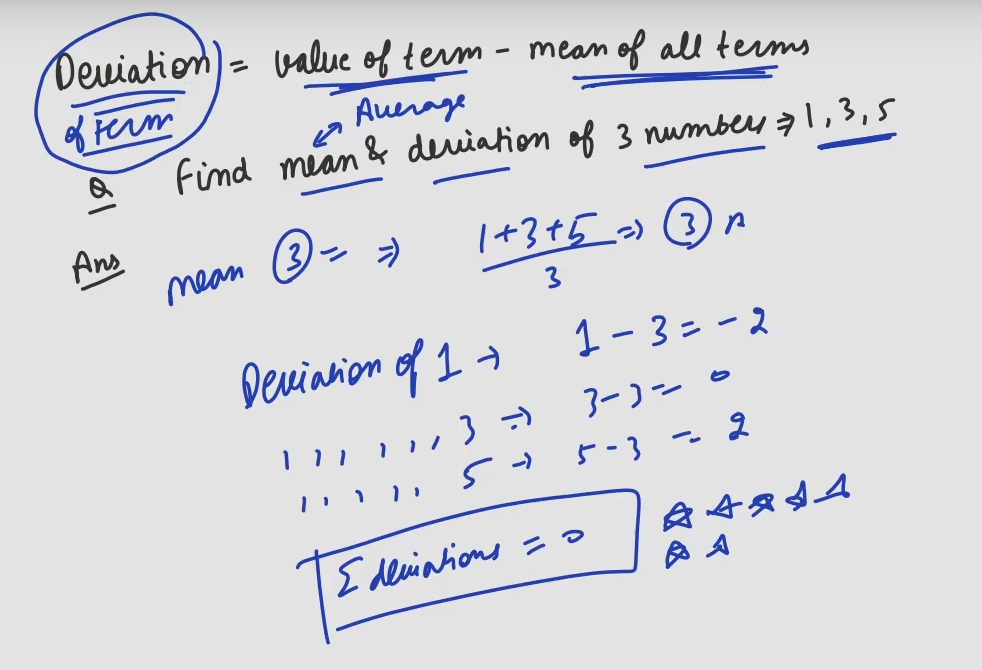 Deviation = value of term - mean of all terms
of term
Average
Q Find mean & deviation of 3 numbers ⇒ 1, 3, 5
Ans mean 3 = ⇒ 1+3+5 ⇒ 3
3
Deviation of 1 → 1 - 3 = - 2
,, ,, ,, 3 ⇒ 3 - 3 = 0
,, ,, ,, 5 → 5 - 3 = 2
Σ deviations = 0